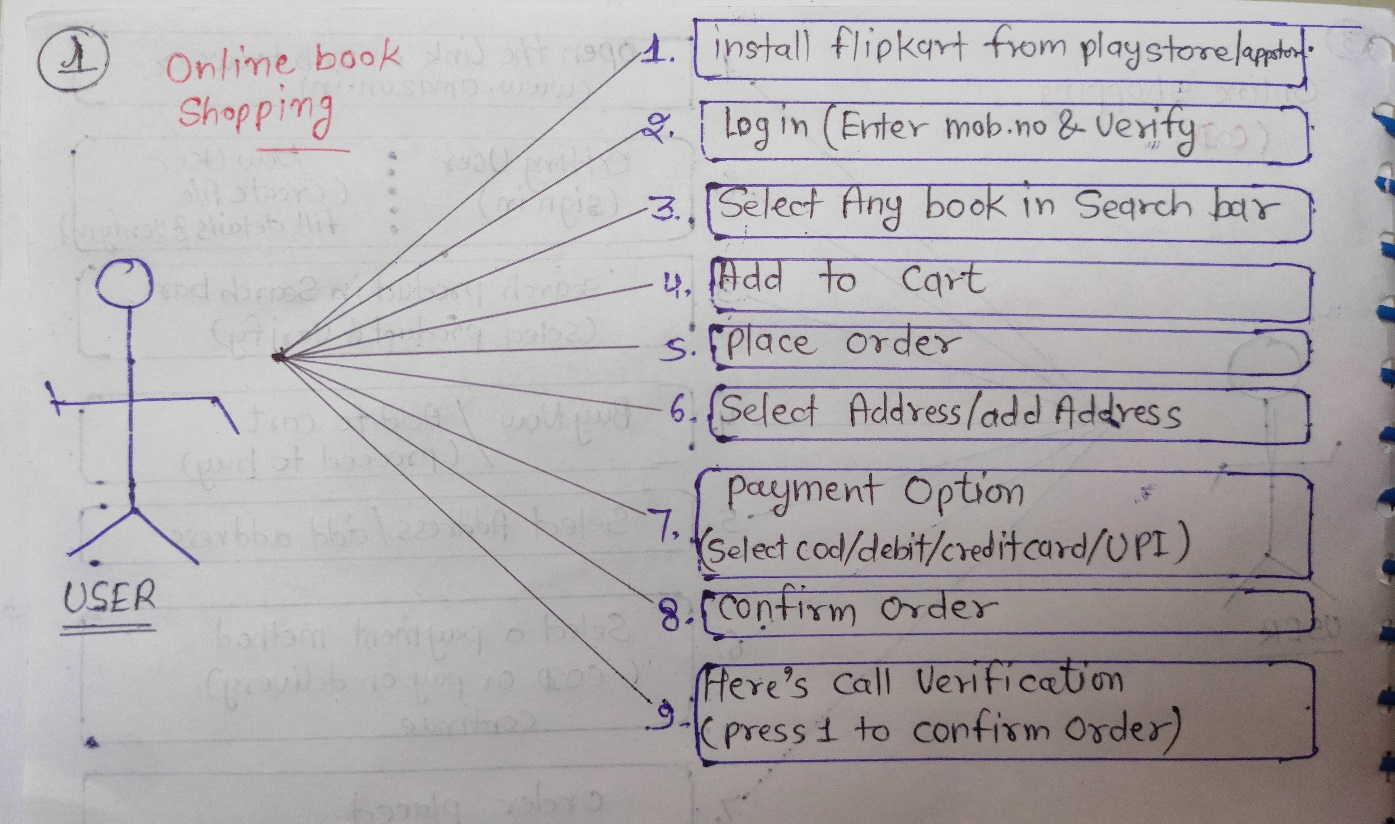 1
Online book
Shopping
1. install flipkart from playstore/appstore
2. Log in (Enter mob.no & Verify
3. Select Any book in Search bar
4. Add to Cart
5. Place order
6. Select Address/add Address
7. Payment Option
(Select cod/debit/creditcard/UPI)
8. Confirm Order
9. Here's Call Verification
(press 1 to confirm Order)
USER